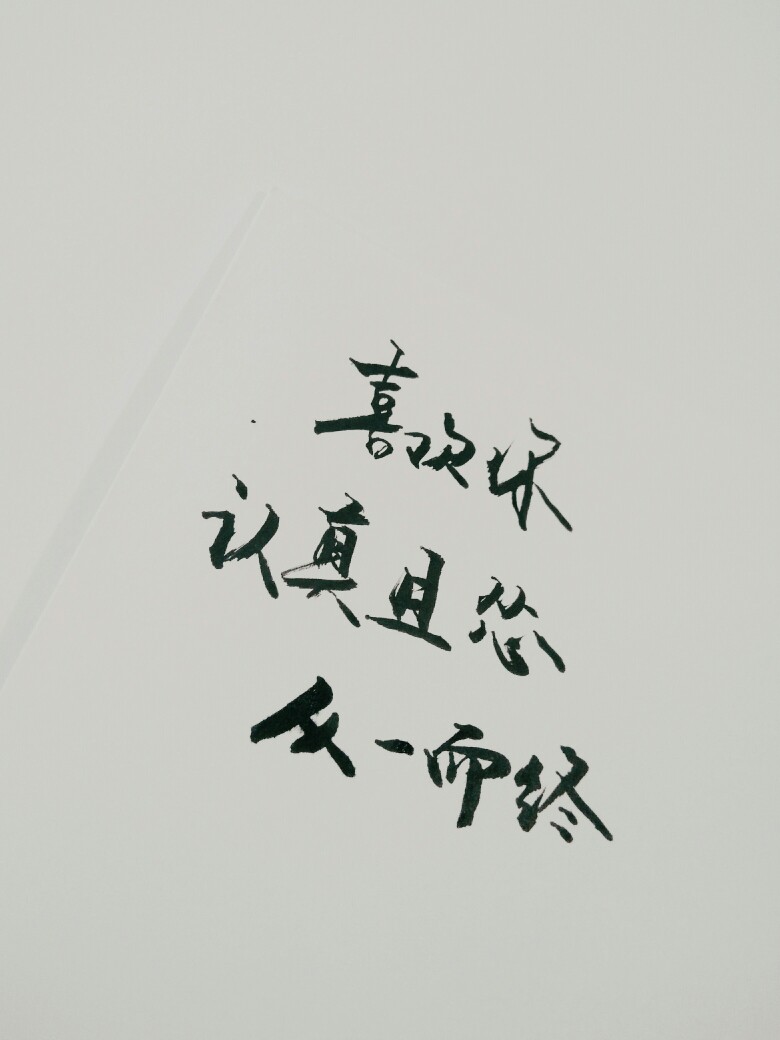 喜欢你
认真且怂
从一而终